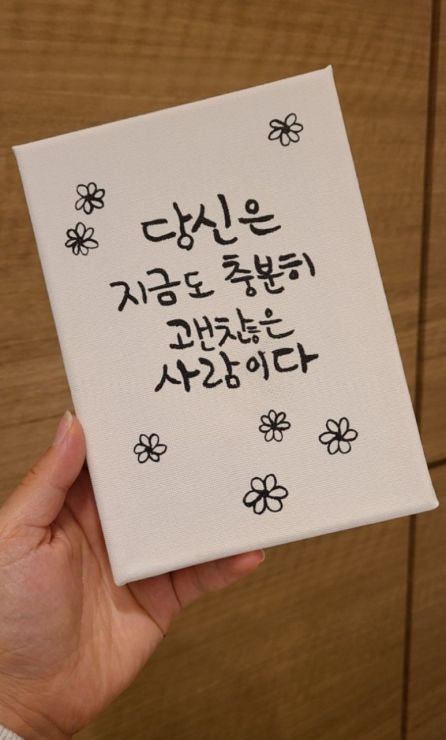 당신은
지금도 충분히
괜찮은
사람이다